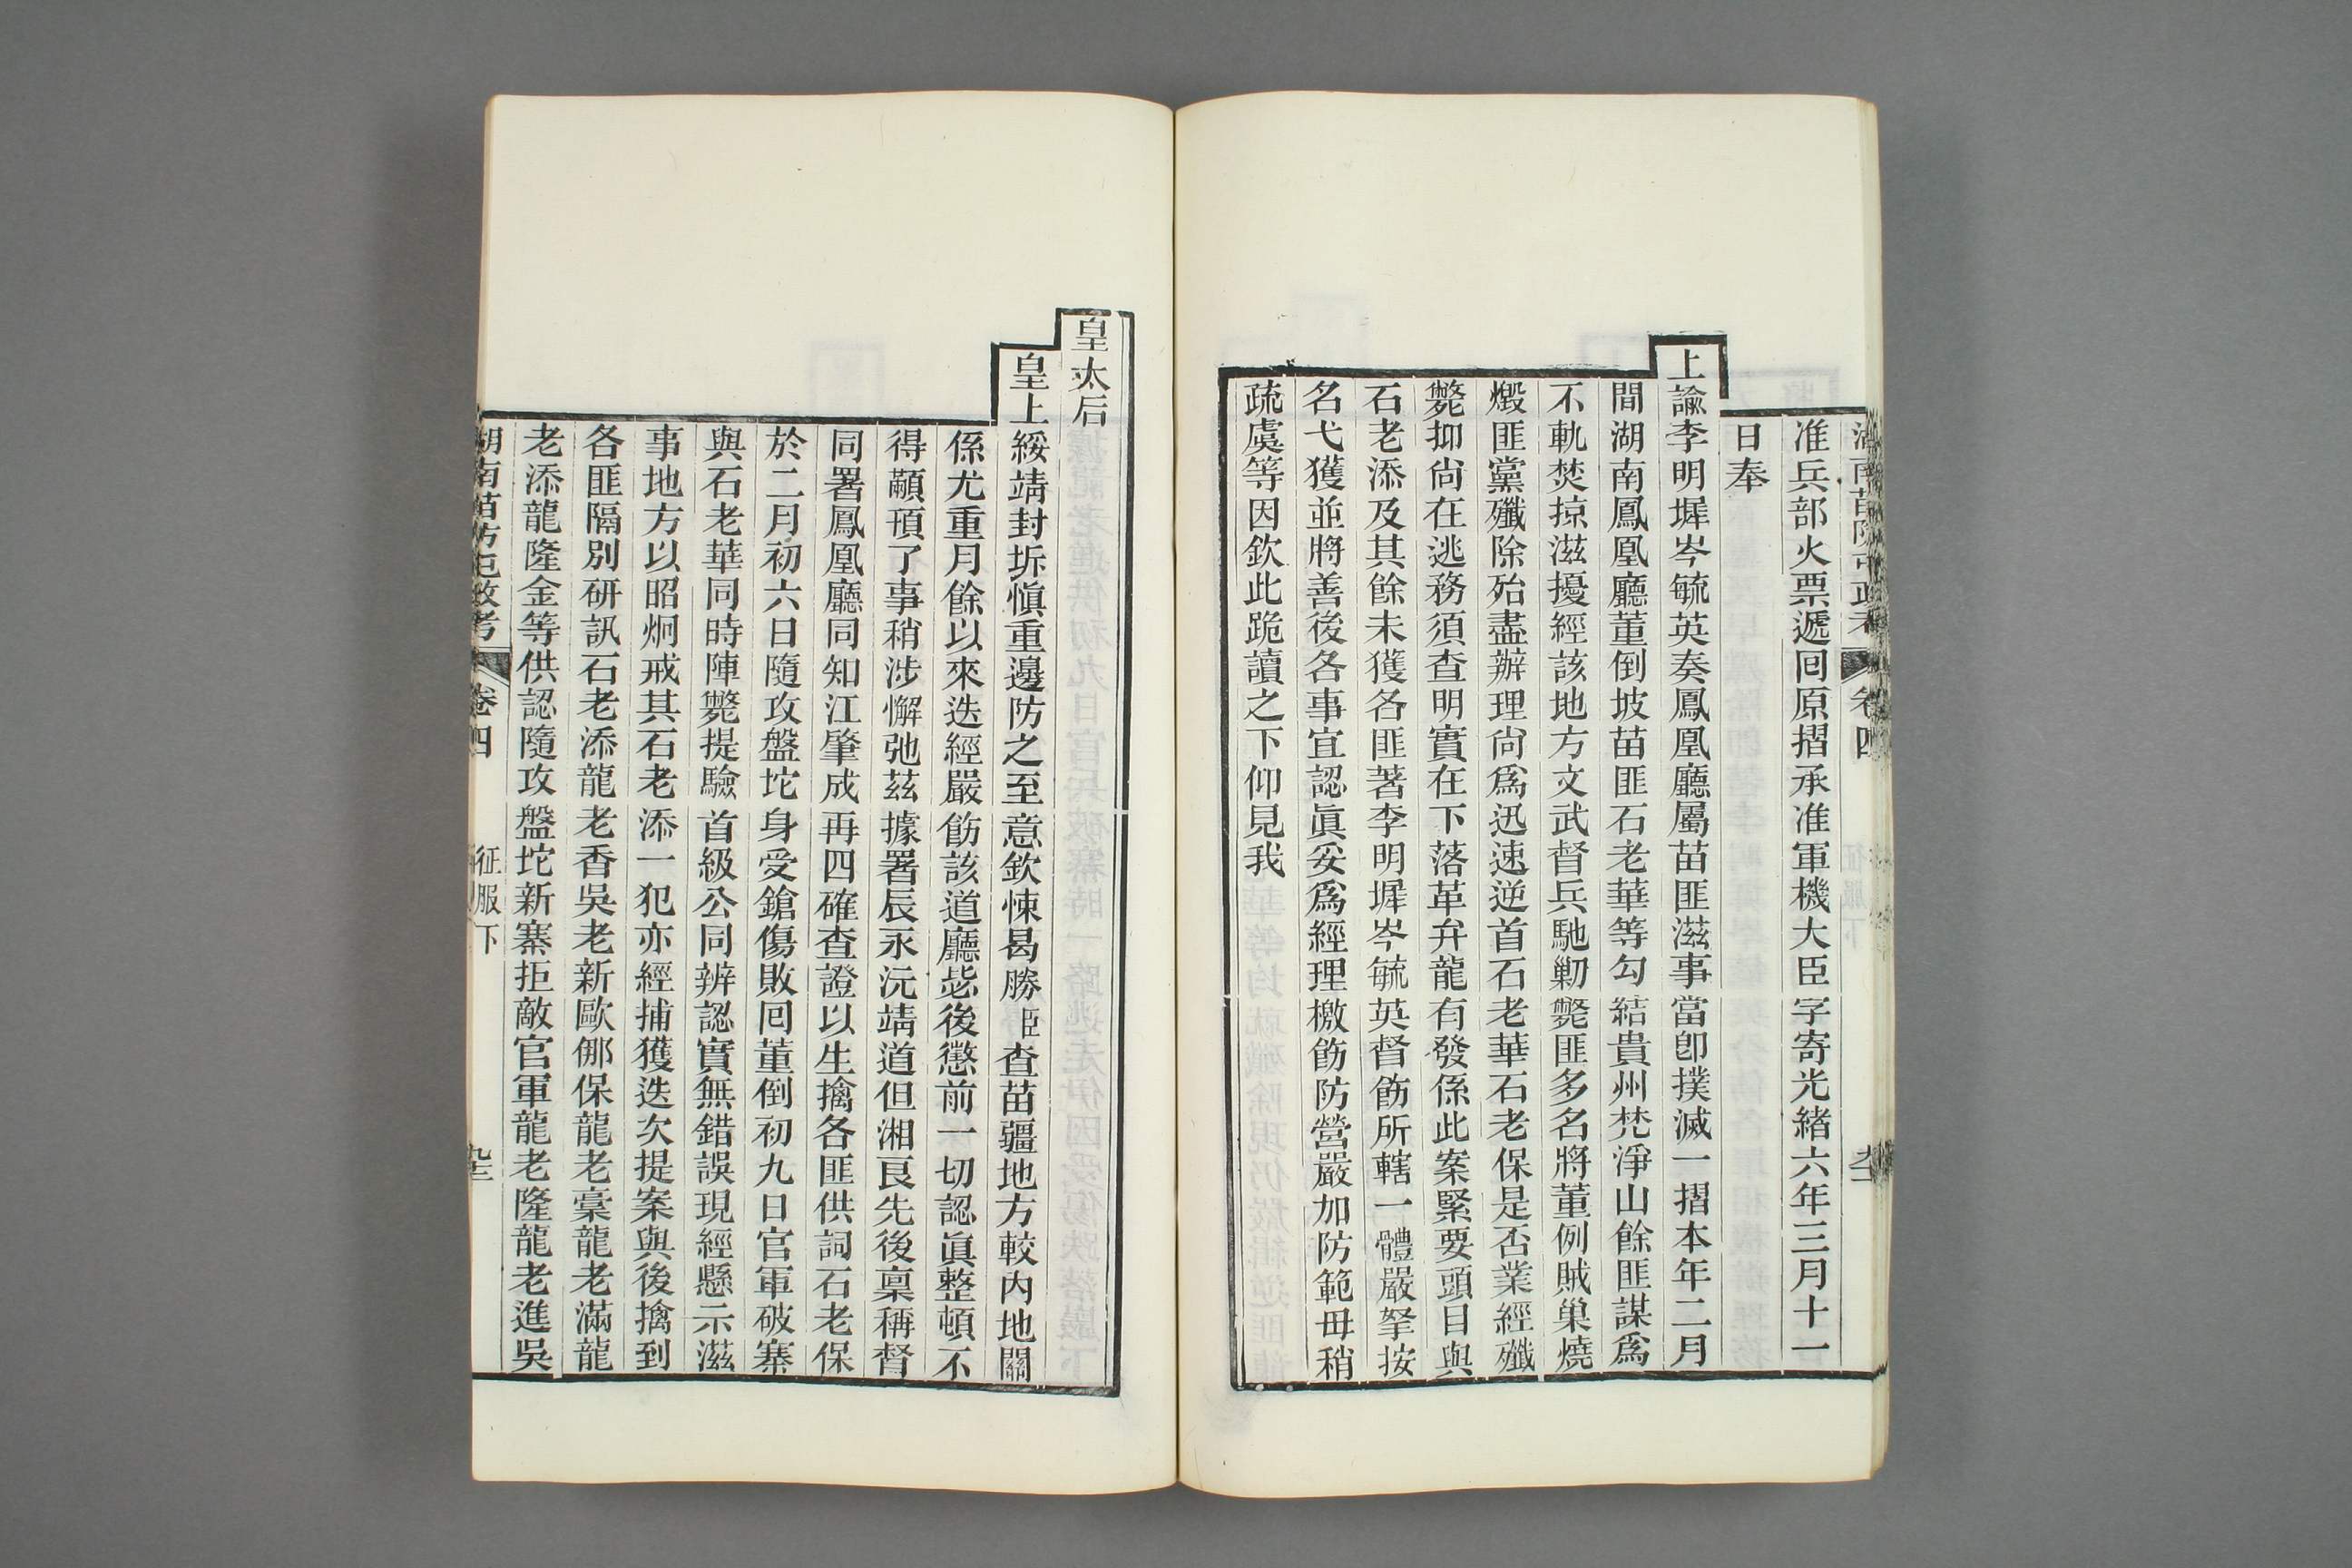 湖南苗防屯政考 卷四 征服下
准兵部火票遞囘原摺承准軍機大臣字寄光緒六年三月十一
日奉
上諭李明墀岑毓英奏鳳凰廳屬苗匪滋事當卽撲滅一摺本年二月
間湖南鳳凰廳董倒坡苗匪石老華等勾結貴州梵淨山餘匪謀爲
不軌焚掠滋擾經該地方文武督兵馳勦斃匪多名將董例賊巢燒
燬匪黨殲除殆盡辦理尙爲迅速逆首石老華石老保是否業經殲
斃抑尙在逃務須查明實在下落革弁龍有發係此案緊要頭目與
石老添及其餘未獲各匪著李明墀岑毓英督飭所轄一體嚴拏按
名弋獲並將善後各事宜認眞妥爲經理檄飭防營嚴加防範毋稍
疏虞等因欽此跪讀之下仰見我
皇太后
皇上綏靖封圻愼重邊防之至意欽悚曷勝臣查苗疆地方較內地關
係尤重月餘以來迭經嚴飭該道廳毖後懲前一切認眞整頓不
得顢頇了事稍涉懈弛茲據署辰永沅靖道但湘良先後稟稱督
同署鳳凰廳同知江肇成再四確查證以生擒各匪供詞石老保
於二月初六日隨攻盤坨身受鎗傷敗囘董倒初九日官軍破寨
與石老華同時陣斃提驗首級公同辨認實無錯誤現經懸示滋
事地方以昭炯戒其石老添一犯亦經捕獲迭次提案與後擒到
各匪隔別硏訊石老添龍老香吳老新歐郍保龍老稾龍老滿龍
老添龍隆金等供認隨攻盤坨新寨拒敵官軍龍老隆龍老進吳
湖南苗防屯政考 卷四 征服下